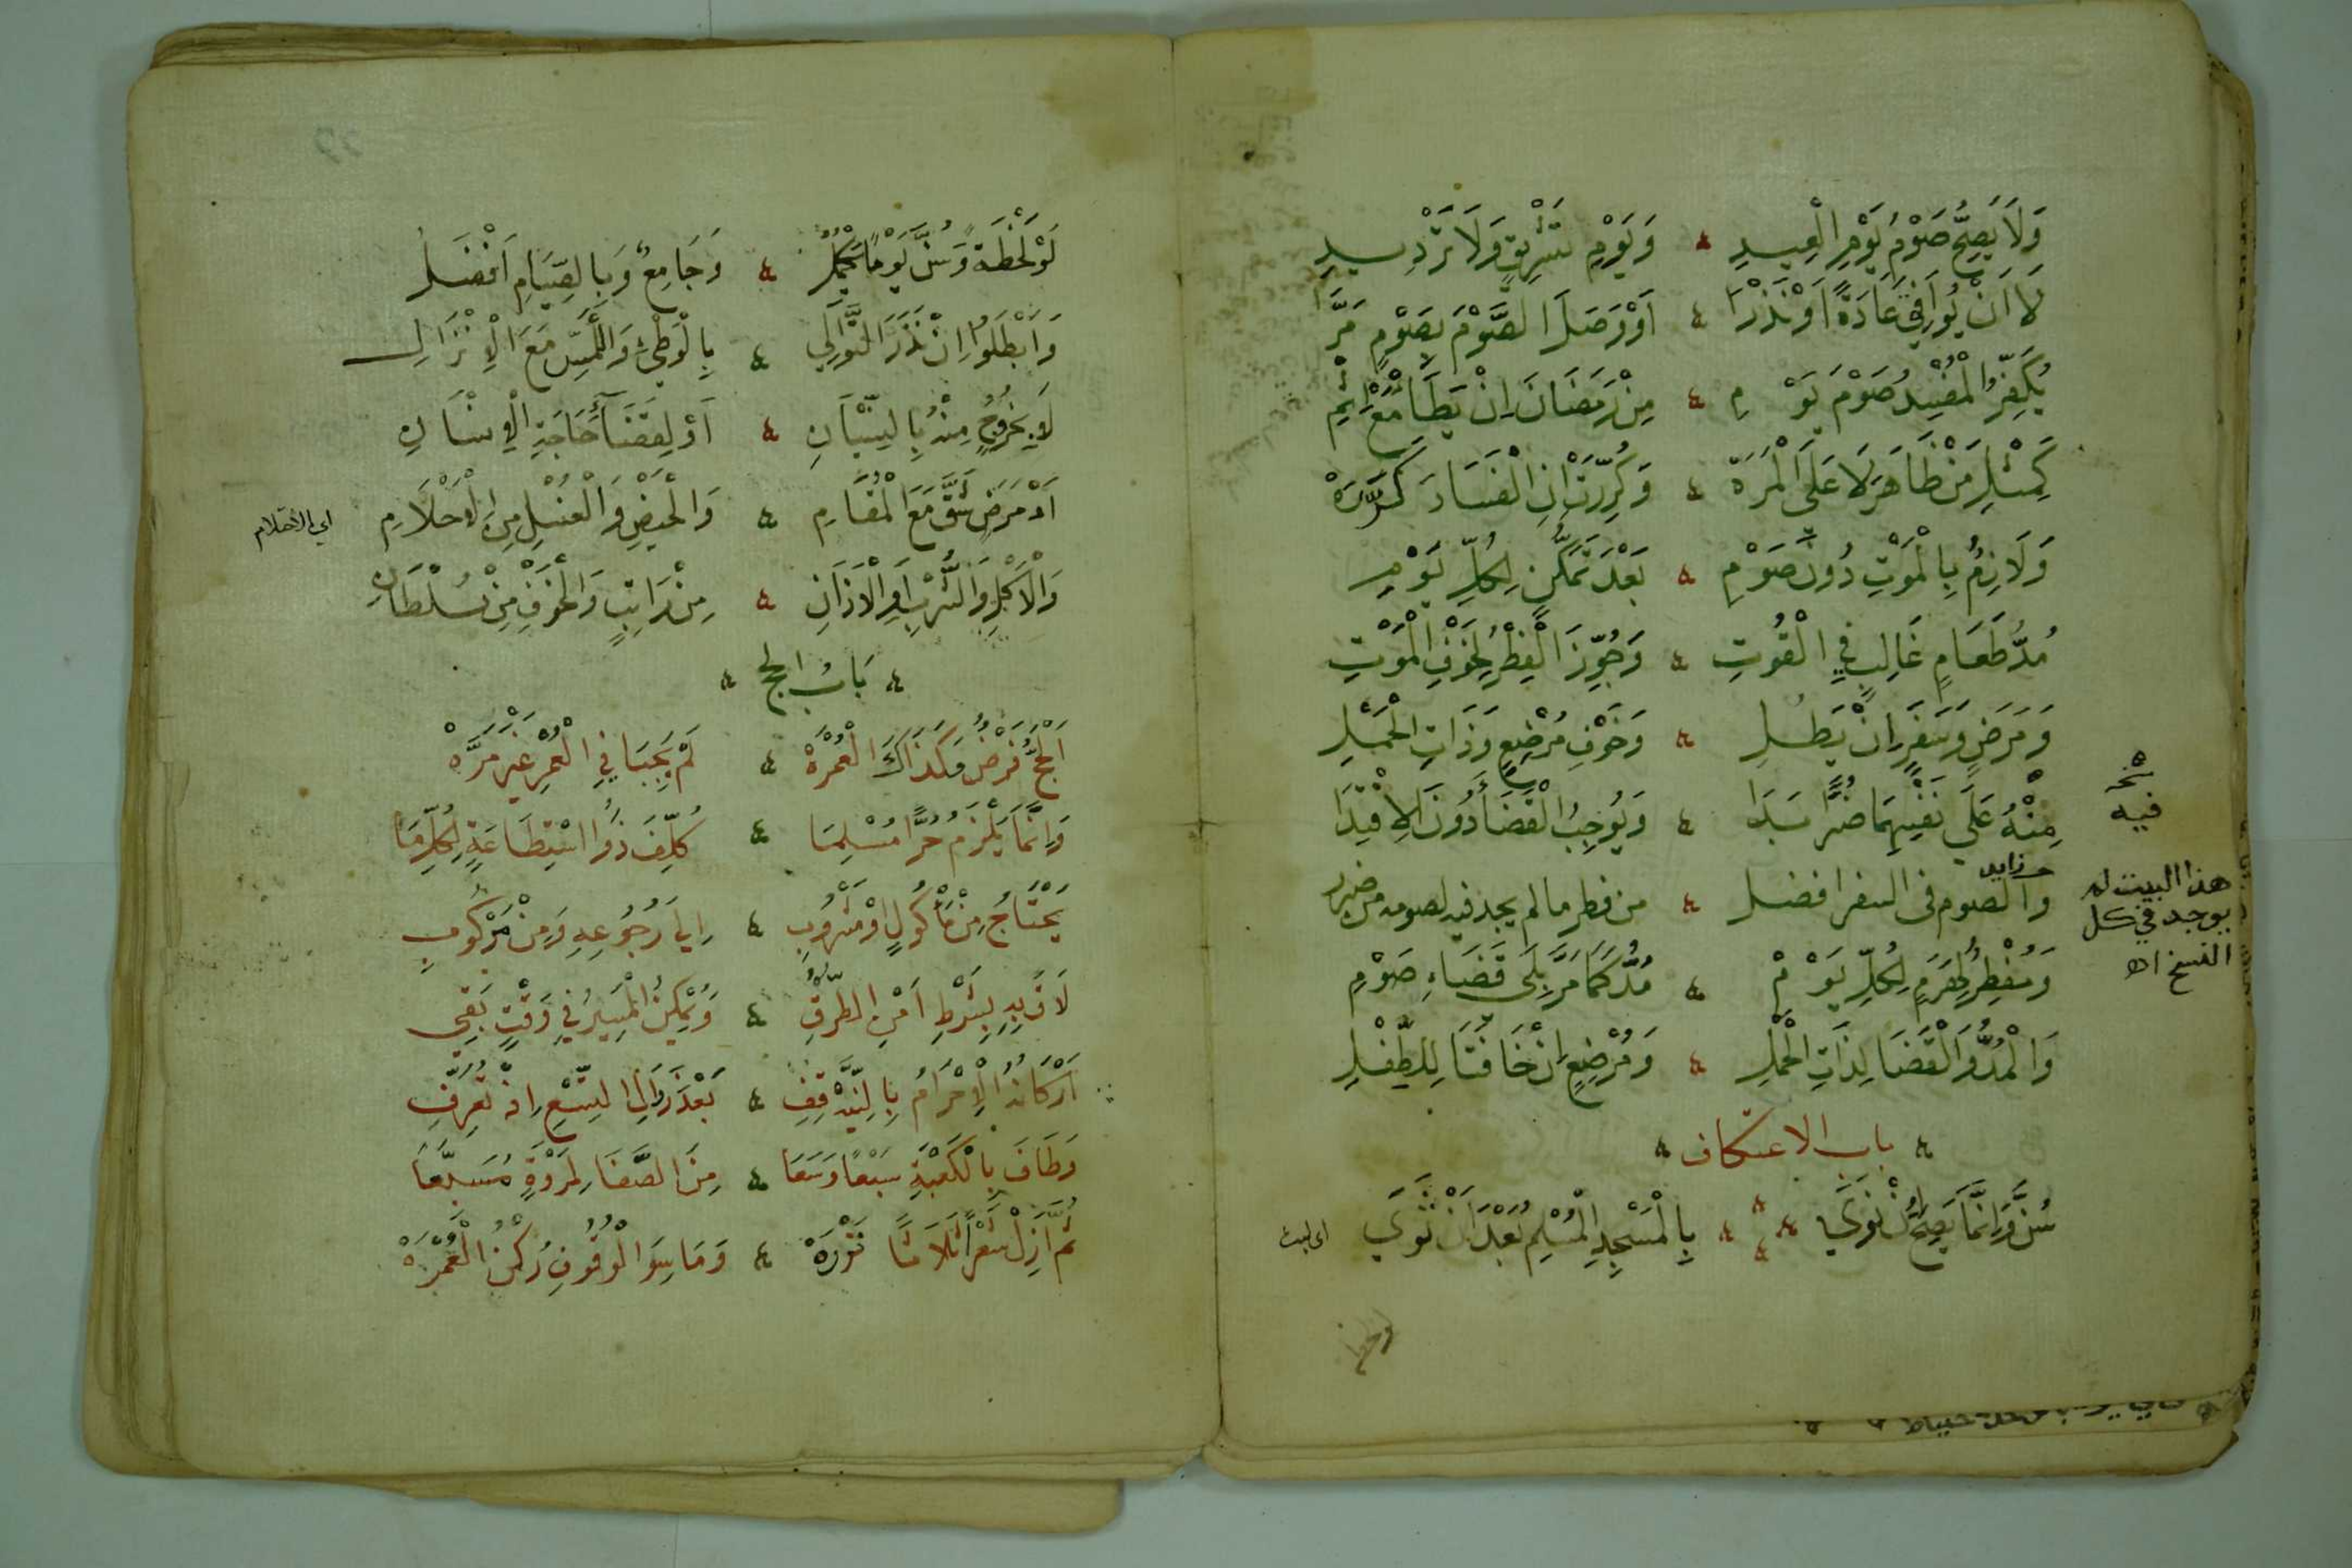 وَلَا يَصِحُّ صَوْمُ يَوْمِ الْعِيدِ ۞ وَيَوْمِ تَشْرِيقٍ وَلَا تَرْدِيدِ
لَا اَنْ يُوَافِقْ عَادَةً اَوْ نَذْرَا ۞ اَوْ وَصَلَ الصَّوْمَ بِصَوْمٍ مَرَّا
يُكَفِّرُ الْمُفْسِدُ صَوْمَ يَوْمِ ۞ مِنْ رَمَضَانَ اِنْ يَطَأْ مَعْ اِثْمِ
كَمِثْلِ مَنْ ظَاهَرَ لَا عَلَى الْمَرَهْ ۞ وَكُرِّرَتْ اِنِ الْفَسَادَ كَرَّرَهْ
وَلَازِمٌ بِالْمَوْتِ دُونَ صَوْمِ ۞ بَعْدَ تَمَكُّنٍ لِكُلِّ يَوْمِ
مُدُّ طَعَامٍ غَالِبٍ فِي الْقُوتِ ۞ وَجُوِّزَ الْفِطْرُ لِخَوْفِ الْمَوْتِ
وَمَرَضٍ وَسَفَرٍ اِنْ يَطُلِ ۞ وَخَوْفِ مُرْضِعٍ وَذَاتِ الْحَمْلِ
مِنْهُ عَلَى نَفْسِهِمَا ضُرًّا بَدَا ۞ وَيُوجِبُ الْقَضَاءَ دُونَ الِافْتِدَا
نخـ
فيه
زايد
والصوم فى السفر افضل ۞ من فطر مالم يجد فيه لصومه من ضرر
هذا البيت لم
يوجد في كل
النسخ اه
وَمُفْطِرٌ لِهَرَمٍ لِكُلِّ يَوْمْ ۞ مُدٌّ كَمَا مَرَّ بِلَى قَضَاءِ صَوْمِ
وَالْمُدُّ وَالْقَضَا لِذَاتِ الْحَمْلِ ۞ وَمُرْضِعٍ اِنْ خَافَتَا لِلطِّفْلِ
۞ باب الاعتكاف ۞
سُنَّ وَاِنَّمَا يَصِحُّ اِنْ نَوَى ۞ بِالْمَسْجِدِ الْمُسْلِمُ بَعْدَ اَنْ ثَوَى
اى لبث
لَوْ لَحْظَةً وَسُنَّ يَوْمًا يَكْمُلُ ۞ وَجَامِعٌ وَبِالصِّيَامِ اَفْضَلُ
وَاَبْطَلُوا اِنْ نَذَرَ التَّوَالِي ۞ بِالْوَطْئِ وَاللَّمْسِ مَعَ الْاِنْزَالِ
لَا بِخُرُوجٍ مِنْهُ بِالنِّسْيَانِ ۞ اَوْ لِقَضَاءِ حَاجَةِ الْاِنْسَانِ
اَوْ مَرَضٍ شَقَّ مَعَ الْمُقَامِ ۞ وَالْحَيْضِ وَالْغُسْلِ مِنَ الْاحْتِلَامِ
اى الاحتلام
وَالْاَكْلِ وَالشُّرْبِ اَوِ الْاَذَانِ ۞ مِنْ رَاتِبٍ وَالْخَوْفِ مِنْ سُلْطَانِ
۞ بَابُ الحج ۞
اَلْحَجُّ فَرْضٌ وَكَذَاكَ الْعُمْرَهْ ۞ لَمْ يَجِبَا فِي الْعُمْرِ غَيْرَ مَرَّهْ
وَاِنَّمَا يَلْزَمُ حُرًّا مُسْلِمَا ۞ كُلِّفَ ذُو اسْتِطَاعَةٍ لِكُلِّ مَا
يَحْتَاجُ مِنْ مَأْكُولٍ اوْ مَشْرُوبِ ۞ اِلَى رُجُوعِهِ وَمِنْ مَرْكُوبِ
لَاقَ بِهِ بِشَرْطِ اَمْنِ الطُّرُقِ ۞ وَيُمْكِنُ الْمَسِيرُ فِي وَقْتٍ بَقِي
اَرْكَانُهُ الْاِحْرَامُ بِالنِّيَّةِ قِفْ ۞ بَعْدَ زَوَالِ التِّسْعِ اِذْ تُعَرِّفِ
وَطَافَ بِالْكَعْبَةِ سَبْعًا وَسَعَا ۞ مِنَ الصَّفَا لِمَرْوَةٍ مُسَبِّعَا
ثُمَّ اَزِلْ شَعْرًا ثَلَاثًا نَزْرَهْ ۞ وَمَا سِوَى الْوُقُوفِ رُكْنُ الْعُمْرَهْ